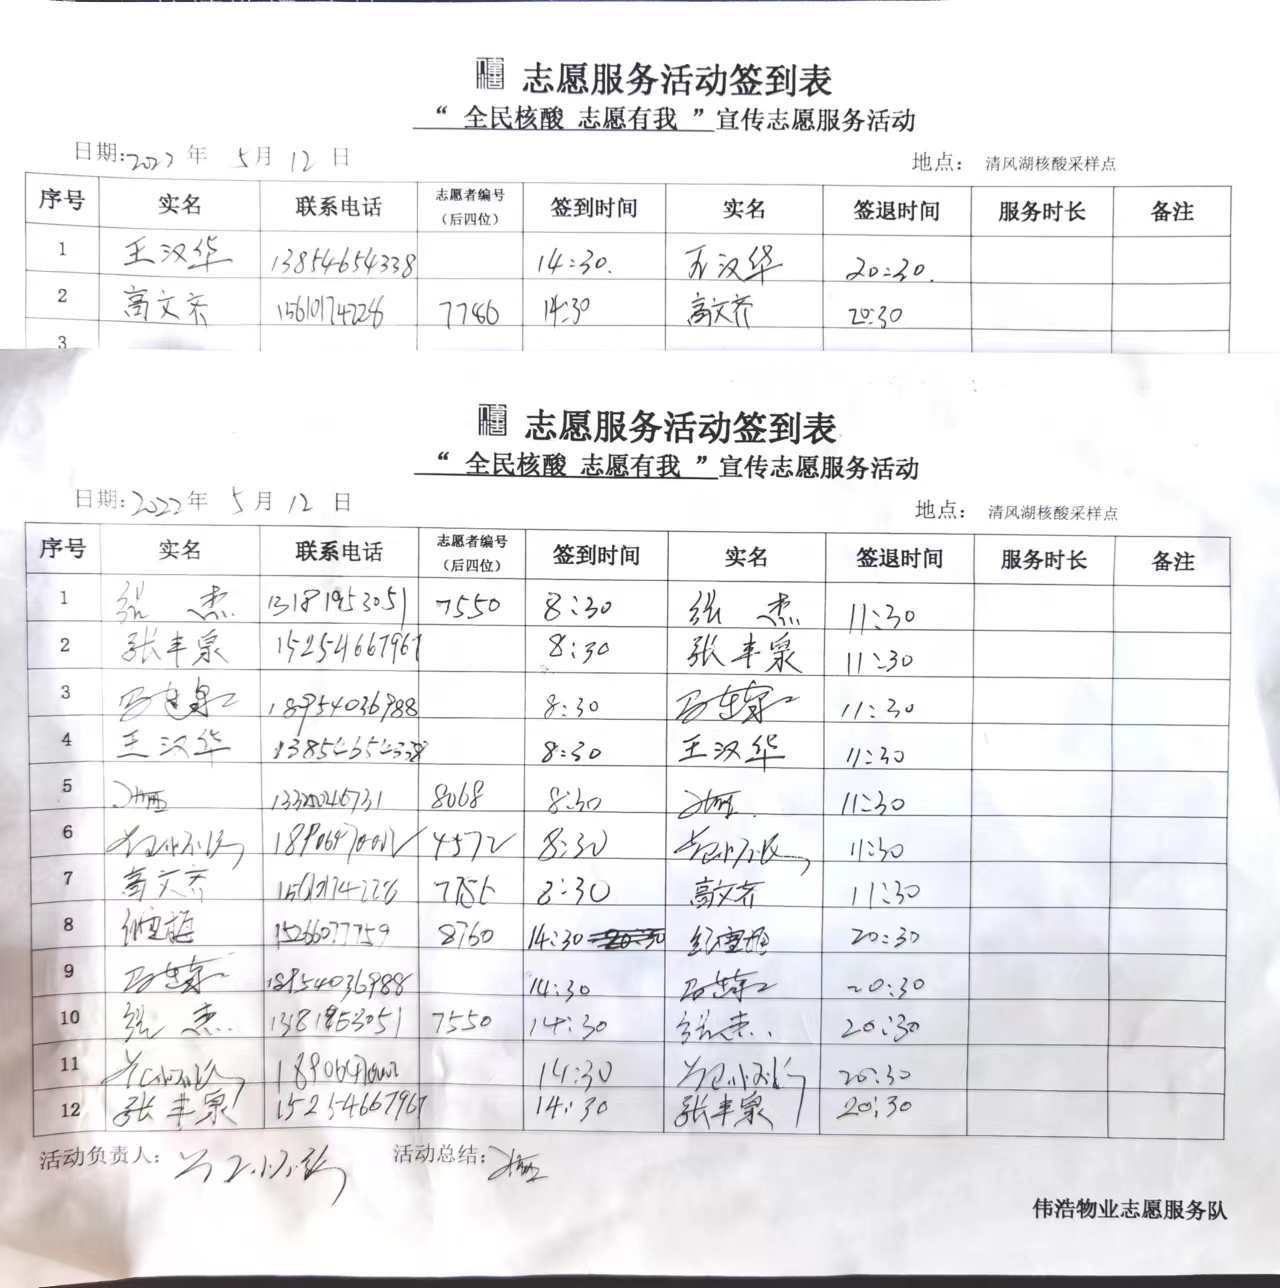 志愿服务活动签到表
“ 全民核酸 志愿有我 ”宣传志愿服务活动
日期:2022年 5月 12日 地点： 清风湖核酸采样点
序号 实名 联系电话 志愿者编号（后四位） 签到时间 实名 签退时间 服务时长 备注
1 王汉华 13854654338 14:30. 王汉华 20:30.
2 高文齐 15610174226 7786 14:30 高文齐 20:30
3
志愿服务活动签到表
“ 全民核酸 志愿有我 ”宣传志愿服务活动
日期:2022年 5月 12日 地点： 清风湖核酸采样点
序号 实名 联系电话 志愿者编号（后四位） 签到时间 实名 签退时间 服务时长 备注
1 张杰 13181953051 7550 8:30 张杰 11:30
2 张丰泉 15254667967 8:30 张丰泉 11:30
3 18954036988 8:30 11:30
4 王汉华 13854654338 8:30 王汉华 11:30
5 8068 8:30 11:30
6 4572 8:30 11:30
7 高文齐 15610174226 7786 8:30 高文齐 11:30
8 15266077759 8760 14:30 20:30
9 18954036988 14:30 20:30
10 张杰 13181953051 7550 14:30 张杰 20:30
11 14:30 20:30
12 张丰泉 15254667967 14:30 张丰泉 20:30
活动负责人： 活动总结:
伟浩物业志愿服务队